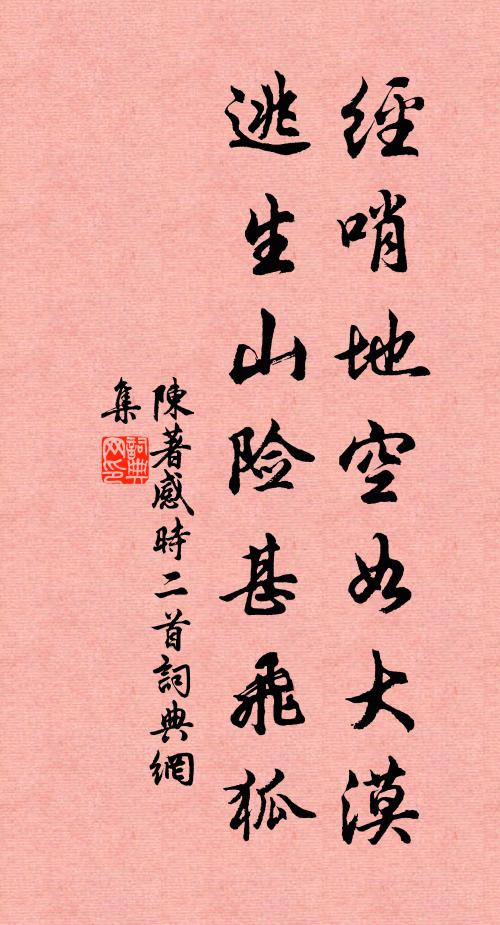 經哨地空如大漠
逃生山險甚飛狐
陳著感時二首詞典網
集
詞典
网印